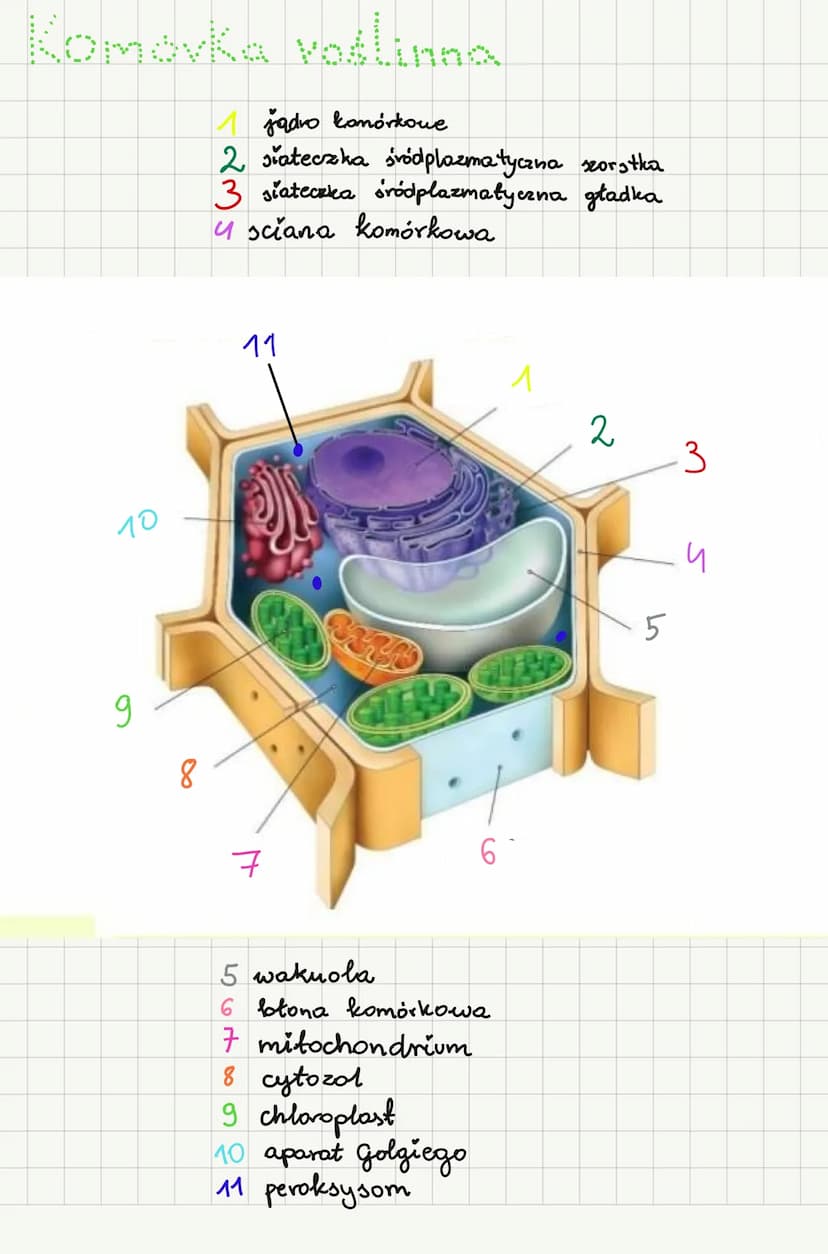 Komórka roślinna
1 jądro komórkowe
2 siateczka śródplazmatyczna szorstka
3 siateczka śródplazmatyczna gładka
4 sciana komórkowa
11
1
2
3
10
4
5
9
8
7
6
5 wakuola
6 błona komórkowa
7 mitochondrium
8 cytozol
9 chloroplast
10 aparat Golgiego
11 peroksysom